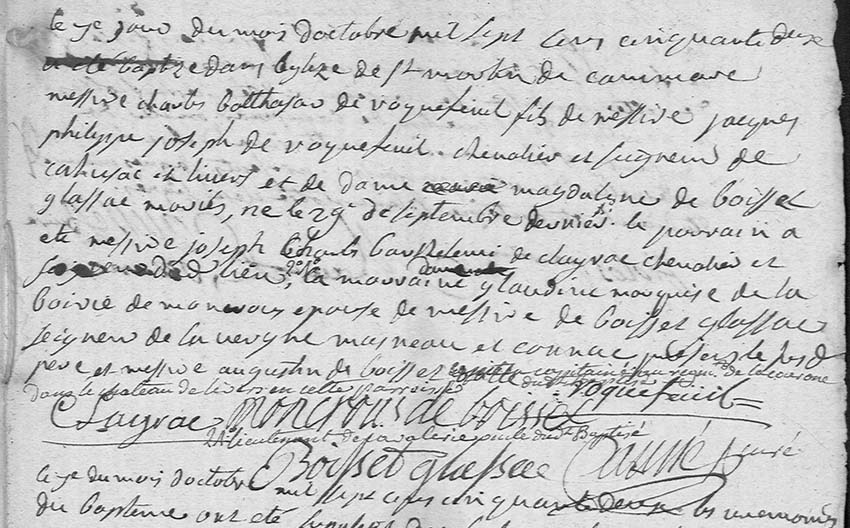 le 7e jour du mois doctobre mil sept cens cinquante deux
a été baptize dans leglize de st martin de cammare
messire charles balthasar de roquefeuil fils de messire jacques
philippe joseph de roquefeuil chevalier et seigneur de
cahusac et livers et de dame magdalene de boisset
glassac mariés, ne le 29e de septembre dernier. le parrain a
ete messire joseph charles barthelemi de clayrac chevalier et
seigneur dud. lieu, la marraine dame glaudine marquise de la
boivie de moncrous epouse de messire de boisset glassac
seigneur de la vergne masneau et connac, presens le susd
pere et messire augustin de boisset capitaine au regim. de la couronne
dans le chateau de livers en cette parroisse roquefeuil
Clayrac moncrous de boisset
lieutenant de cavalerie Baptisé
Boisset glassac curé
le 7e du mois doctobre
mil sept cens cinquante deux les ceremonies
du bapteme ont eté